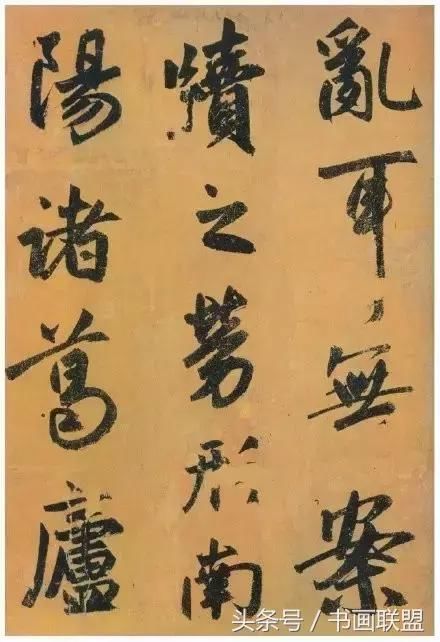 亂耳無案
牘之勞形南
陽諸葛廬
头条号／书画联盟